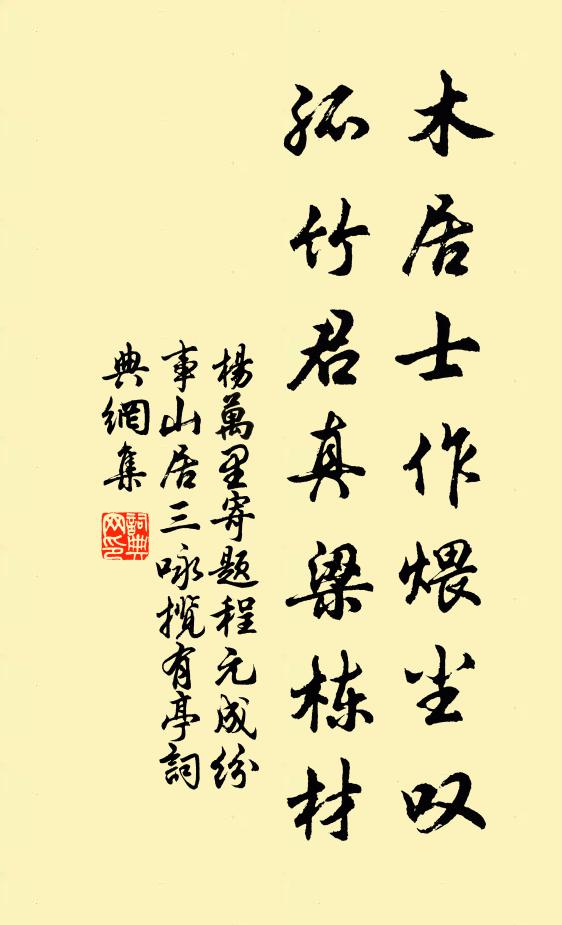 木居士作煨尘叹
孤竹君真梁栋材
楊萬里寄題程元成紛
事山居三咏揽有亭詞
典網集
詞典网印